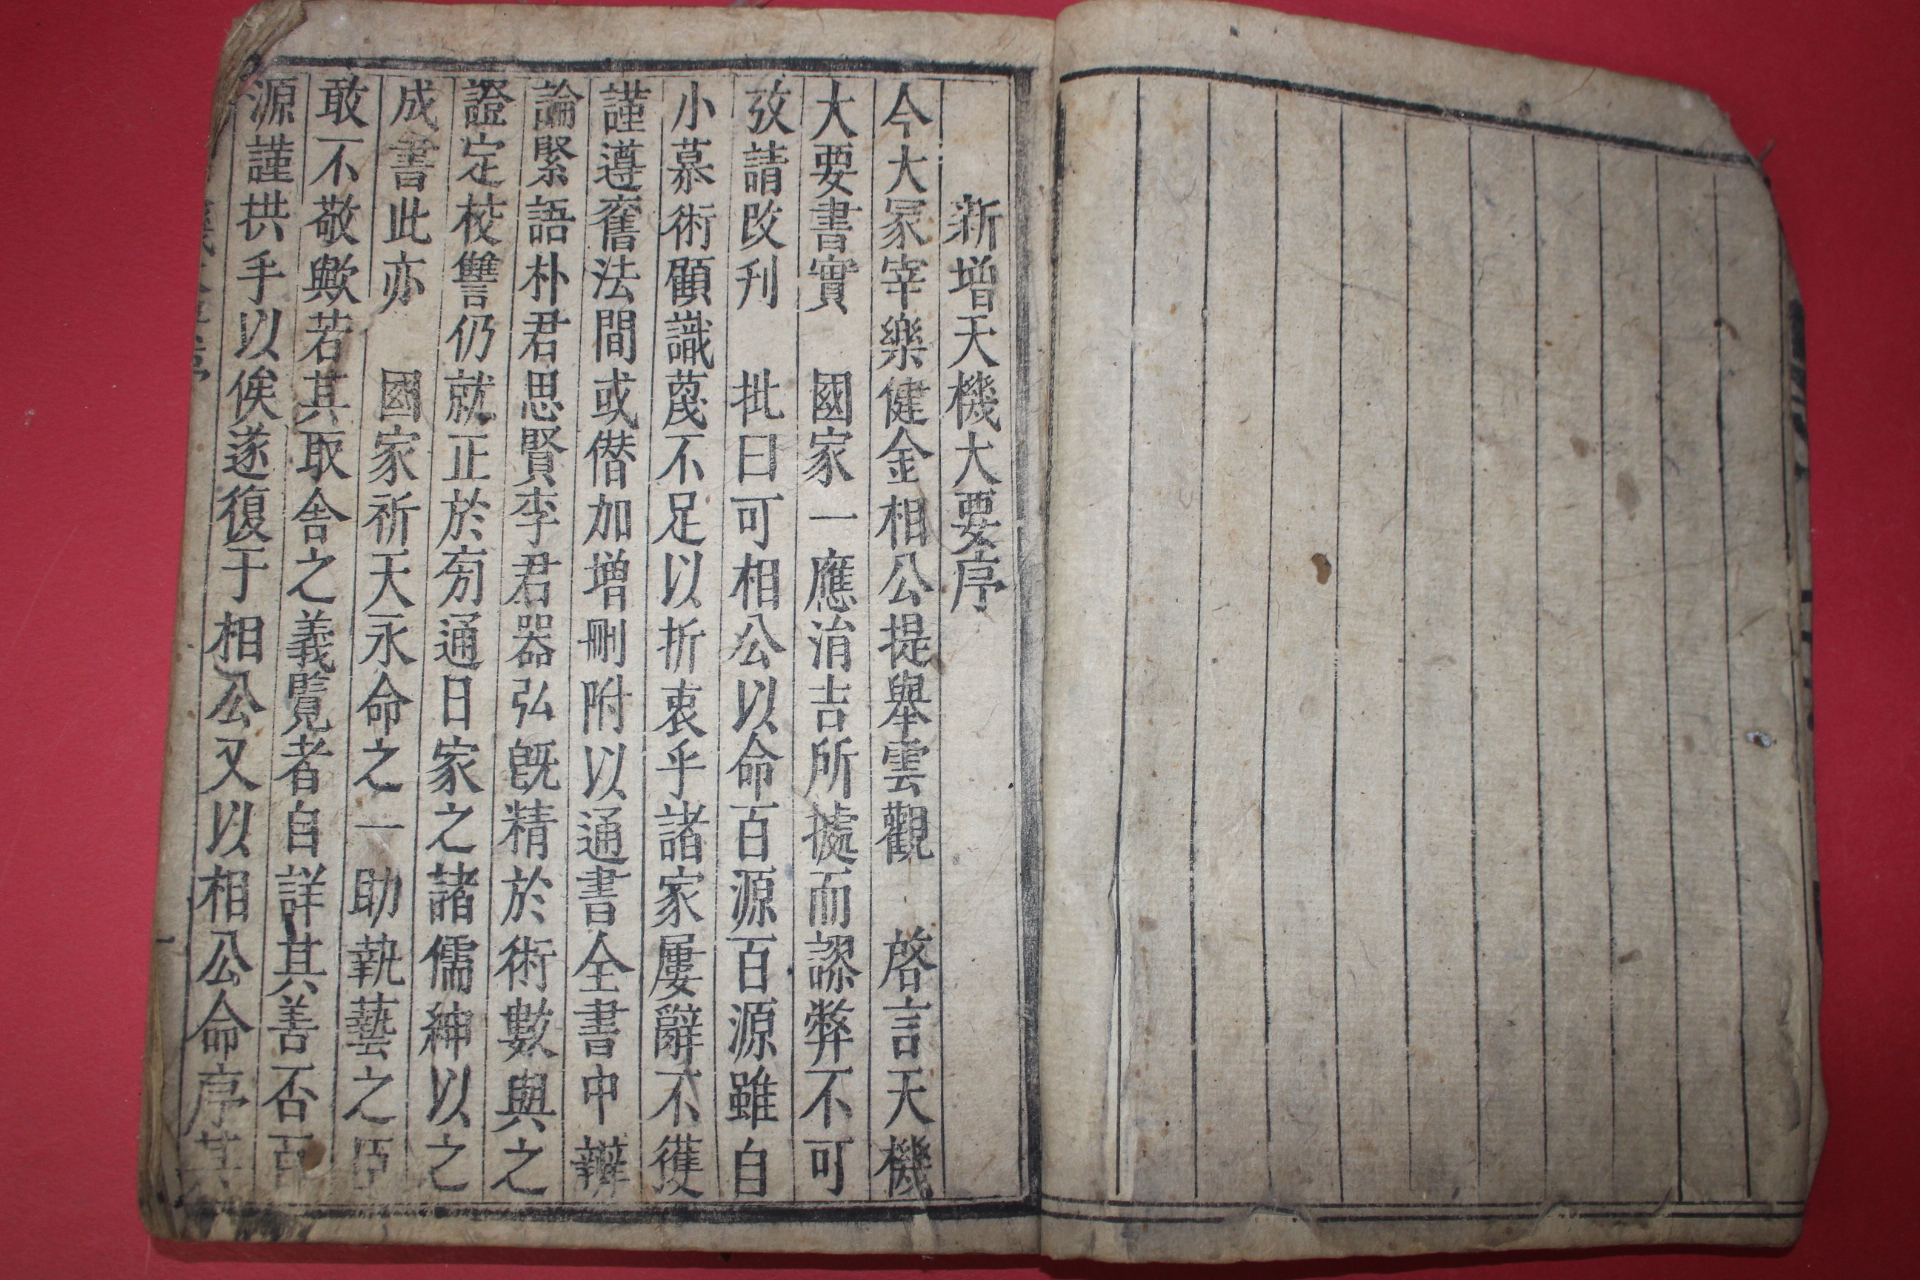 新增天機大要序
今大冢宰樂健金相公提舉雲觀 啓言天機
大要書實 國家一應涓吉所據而謬弊不可
攷請改刋 批曰可相公以命百源百源雖自
小慕術顧識蔑不足以折衷乎諸家屢辭不獲
謹遵舊法間或僭加增刪附以通書全書中辨
論緊語朴君思賢李君器弘旣精於術數與之
證定校讐仍就正於旁通日家之諸儒紳以之
成書此亦 國家祈天永命之一助執藝之臣
敢不敬歟若其取舍之義覽者自詳其善否百
源謹拱手以俟遂復于相公又以相公命序其